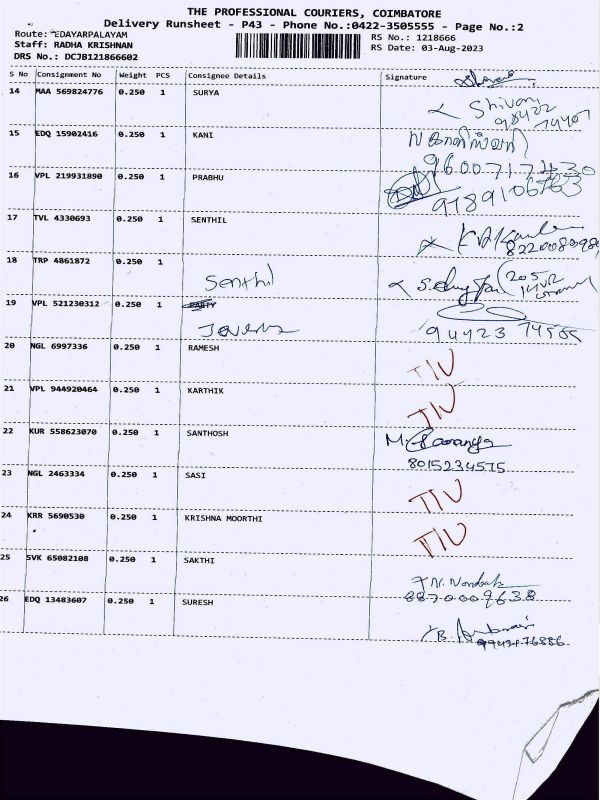 THE PROFESSIONAL COURIERS, COIMBATORE
Delivery Runsheet - P43 - Phone No.:0422-3505555 - Page No.:2
Route: EDAYARPALAYAM
RS No.: 1218666
Staff: RADHA KRISHNAN
RS Date: 03-Aug-2023
DRS No.: DCJB121866602
S No Consignment No Weight PCS Consignee Details Signature
14 MAA 569824776 0.250 1 SURYA
Shivani
98422
74407
15 EDQ 15902416 0.250 1 KANI
9600717430
16 VPL 219931890 0.250 1 PRABHU
9789106763
17 TVL 4330693 0.250 1 SENTHIL
18 TRP 4861872 0.250 1
Senthil
19 VPL 521230312 0.250 1 PARTY
94423 74555
20 NGL 6997336 0.250 1 RAMESH TIU
21 VPL 944920464 0.250 1 KARTHIK TIU
22 KUR 558623070 0.250 1 SANTHOSH
8015234575
23 NGL 2463334 0.250 1 SASI TIU
24 KRR 5690530 0.250 1 KRISHNA MOORTHI TIU
25 SVK 65082108 0.250 1 SAKTHI
8870009638
26 EDQ 13483607 0.250 1 SURESH